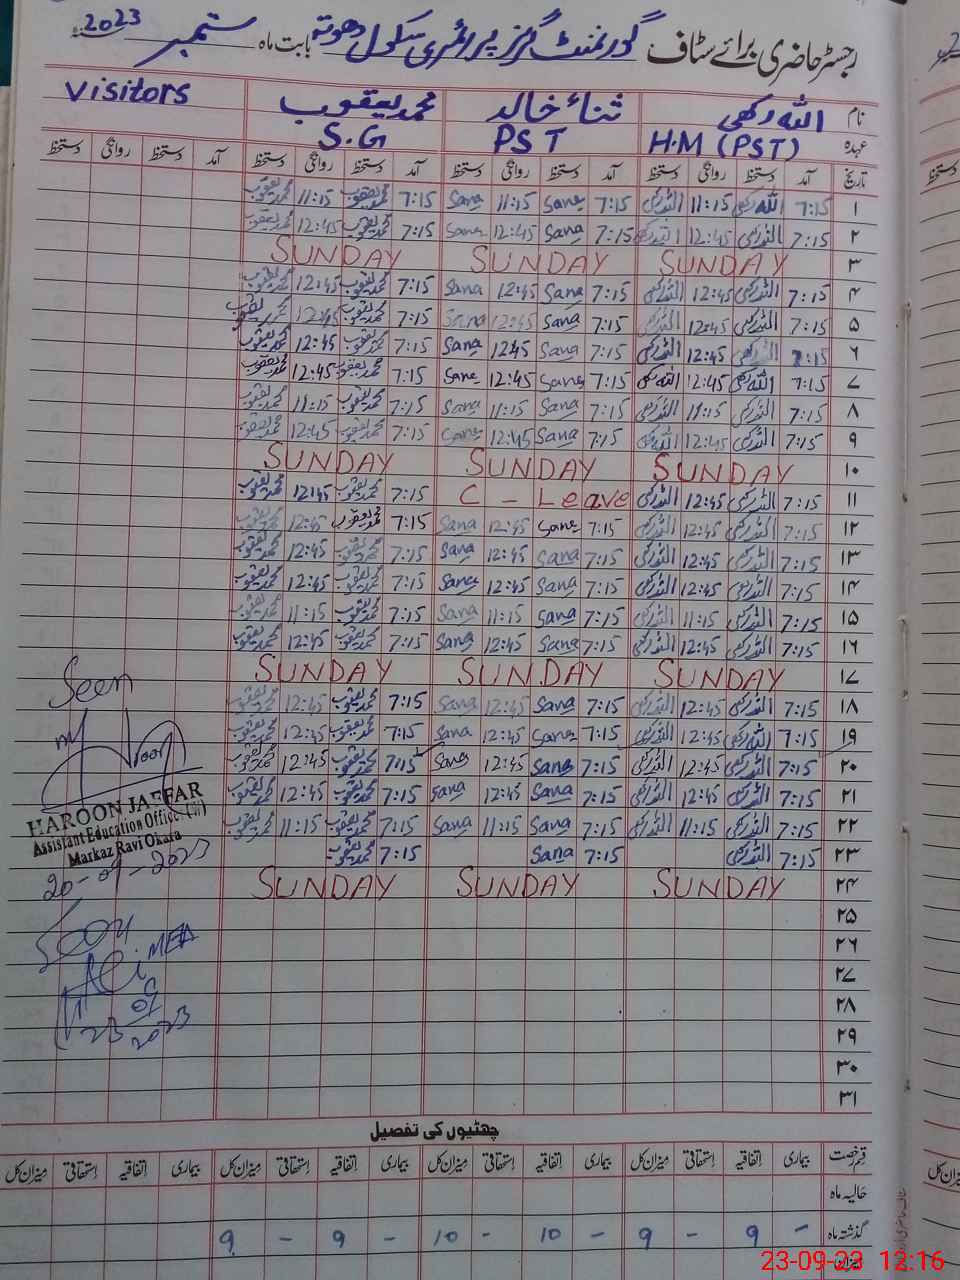 رجسٹر حاضری برائے سٹاف گورنمنٹ گرلز پرائمری سکول دھوتہ بابت ماہ ستمبر 2023
نام اللہ رکھی ثناء خالد محمد یعقوب Visitors
عہدہ H.M (PST) PST S.G
تاریخ آمد دستخط روانگی دستخط آمد دستخط روانگی دستخط آمد دستخط روانگی دستخط آمد دستخط روانگی دستخط
۱ 7:15 اللہ رکھی 11:15 اللہ رکھی 7:15 Sana 11:15 Sana 7:15 محمد یعقوب 11:15 محمد یعقوب
۲ 7:15 اللہ رکھی 12:45 اللہ رکھی 7:15 Sana 12:45 Sana 7:15 محمد یعقوب 12:45 محمد یعقوب
۳ SUNDAY SUNDAY SUNDAY
۴ 7:15 اللہ رکھی 12:45 اللہ رکھی 7:15 Sana 12:45 Sana 7:15 محمد یعقوب 12:45 محمد یعقوب
۵ 7:15 اللہ رکھی 12:45 اللہ رکھی 7:15 Sana 12:45 Sana 7:15 محمد یعقوب 12:45 محمد یعقوب
۶ 7:15 اللہ رکھی 12:45 اللہ رکھی 7:15 Sana 12:45 Sana 7:15 محمد یعقوب 12:45 محمد یعقوب
۷ 7:15 اللہ رکھی 12:45 اللہ رکھی 7:15 Sana 12:45 Sana 7:15 محمد یعقوب 12:45 محمد یعقوب
۸ 7:15 اللہ رکھی 11:15 اللہ رکھی 7:15 Sana 11:15 Sana 7:15 محمد یعقوب 11:15 محمد یعقوب
۹ 7:15 اللہ رکھی 12:45 اللہ رکھی 7:15 Sana 12:45 Sana 7:15 محمد یعقوب 12:45 محمد یعقوب
۱۰ SUNDAY SUNDAY SUNDAY
۱۱ 7:15 اللہ رکھی 12:45 اللہ رکھی C - Leave 7:15 محمد یعقوب 12:45 محمد یعقوب
۱۲ 7:15 اللہ رکھی 12:45 اللہ رکھی 7:15 Sana 12:45 Sana 7:15 محمد یعقوب 12:45 محمد یعقوب
۱۳ 7:15 اللہ رکھی 12:45 اللہ رکھی 7:15 Sana 12:45 Sana 7:15 محمد یعقوب 12:45 محمد یعقوب
۱۴ 7:15 اللہ رکھی 12:45 اللہ رکھی 7:15 Sana 12:45 Sana 7:15 محمد یعقوب 12:45 محمد یعقوب
۱۵ 7:15 اللہ رکھی 11:15 اللہ رکھی 7:15 Sana 11:15 Sana 7:15 محمد یعقوب 11:15 محمد یعقوب
۱۶ 7:15 اللہ رکھی 12:45 اللہ رکھی 7:15 Sana 12:45 Sana 7:15 محمد یعقوب 12:45 محمد یعقوب
۱۷ SUNDAY SUNDAY SUNDAY
۱۸ 7:15 اللہ رکھی 12:45 اللہ رکھی 7:15 Sana 12:45 Sana 7:15 محمد یعقوب 12:45 محمد یعقوب
۱۹ 7:15 اللہ رکھی 12:45 اللہ رکھی 7:15 Sana 12:45 Sana 7:15 محمد یعقوب 12:45 محمد یعقوب
۲۰ 7:15 اللہ رکھی 12:45 اللہ رکھی 7:15 Sana 12:45 Sana 7:15 محمد یعقوب 12:45 محمد یعقوب
۲۱ 7:15 اللہ رکھی 12:45 اللہ رکھی 7:15 Sana 12:45 Sana 7:15 محمد یعقوب 12:45 محمد یعقوب
۲۲ 7:15 اللہ رکھی 11:15 اللہ رکھی 7:15 Sana 11:15 Sana 7:15 محمد یعقوب 11:15 محمد یعقوب
۲۳ 7:15 اللہ رکھی 7:15 Sana 7:15 محمد یعقوب
۲۴ SUNDAY SUNDAY SUNDAY
۲۵
۲۶
۲۷
۲۸
۲۹
۳۰
۳۱
Seen
HAROON JAFFAR
Assistant Education Officer (iii)
Markaz Ravi Okara
20-09-2023
Seen
MEA
23
09
2023
چھٹیوں کی تفصیل
قسم رخصت بیماری اتفاقیہ استحقاقی میزان کل بیماری اتفاقیہ استحقاقی میزان کل بیماری اتفاقیہ استحقاقی میزان کل بیماری اتفاقیہ استحقاقی میزان کل
حالیہ ماہ
گذشتہ ماہ - 9 - 9 - 10 - 10 - 9 - 9
میزان
23-09-23 12:16